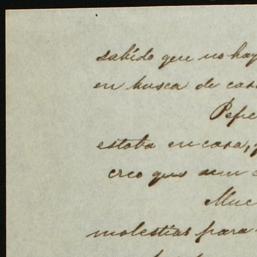 sabido que no hay
en busca de cas
Pepe
estaba en casa,
creo que aun
Muc
molestias para